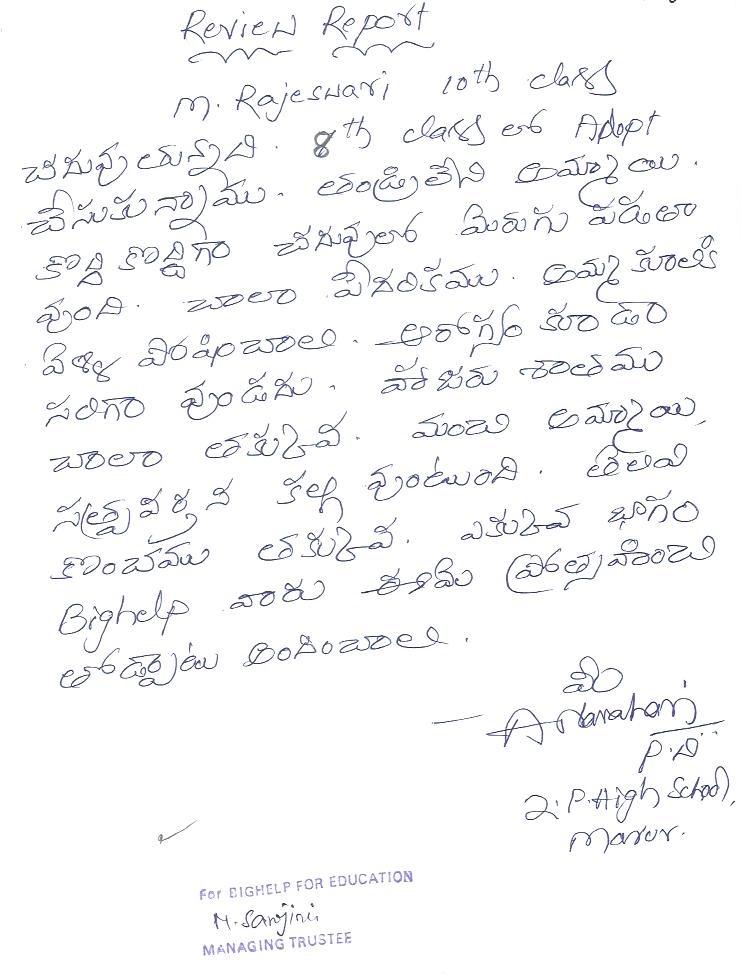 Review Report
M. Rajeswari 10th class
చదువుతున్నది. 8th class లో Adopt
చేసుకున్నాము. తండ్రిలేని అమ్మాయి.
కొద్ది కొద్దిగా చదువులో మెరుగు పడుతూ
వుంది. చాలా పేదరికము. అమ్మ కూలికి
వెళ్ళి పోషించాలి. ఆరోగ్యం కూడా
సరిగా వుండదు. హాజరు శాతము
చాలా తక్కువ. మంచి అమ్మాయి,
సత్ప్రవర్తన కల్గి వుంటుంది. తెలివి
కొంచము తక్కువ. ఎక్కువ భాగం
Bighelp వారు ఈమె ప్రోత్సహించి
తోడ్పాటు అందించాలి.
మీ
A Narahari
P.D
Z.P. High School,
Marur.
For BIGHELP FOR EDUCATION
N. Sarojini
MANAGING TRUSTEE